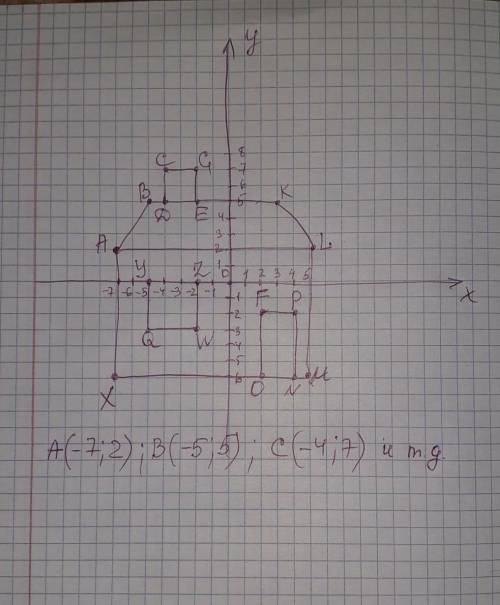 y
8
C G 7
6
B D E 5 K
4
3
A 2 L
1
У Z 0
-7 -6 -5 -4 -3 -2 -1 1 2 3 4 5 x
-1 F P
-2
Q W -3
-4
-5
X -6 O N M
A(-7;2); B(-5;5); C(-4;7) и т.д.